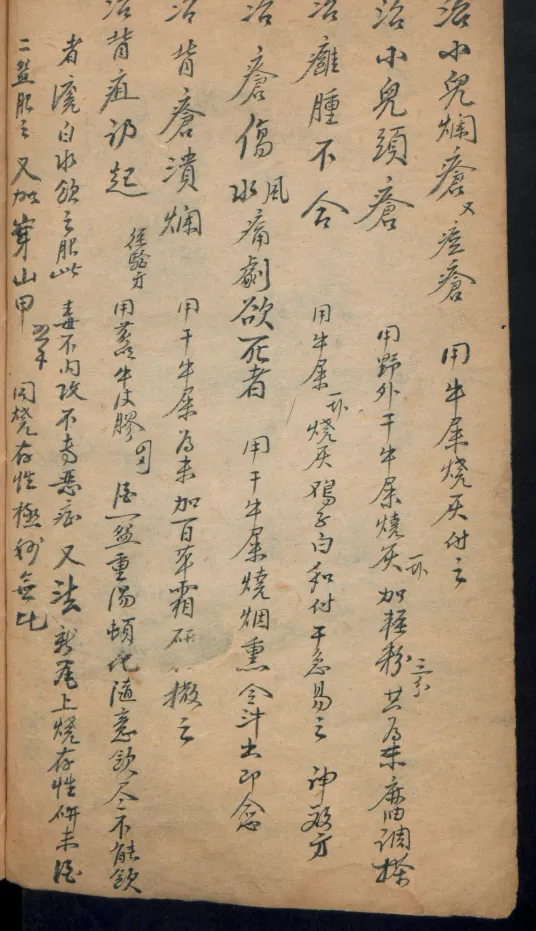 治小兒爛瘡 又痘瘡 用牛屎燒灰付之
治小兒頭瘡 用野外干牛屎燒灰 加輕粉三分 共為末 麻油調搽
治癰腫不合 用牛屎燒灰 鸡子白和付 干急易之 神效方
治瘡傷風水痛劇欲死者 用干牛屎燒烟熏 令汁出即愈
治背瘡潰爛 用干牛屎為末 加百草霜研 撒之
治背疽初起 經驗方 用黃牛皮膠四刄 酒一盌 重湯頓化 隨意飲尽 不能飲
者 滾白水飲之 服此 毒不内攻 不寿惡症 又法 于尾上燒存性 研末 酒
二盌服之 又加穿山甲 同燒存性 極妙無比